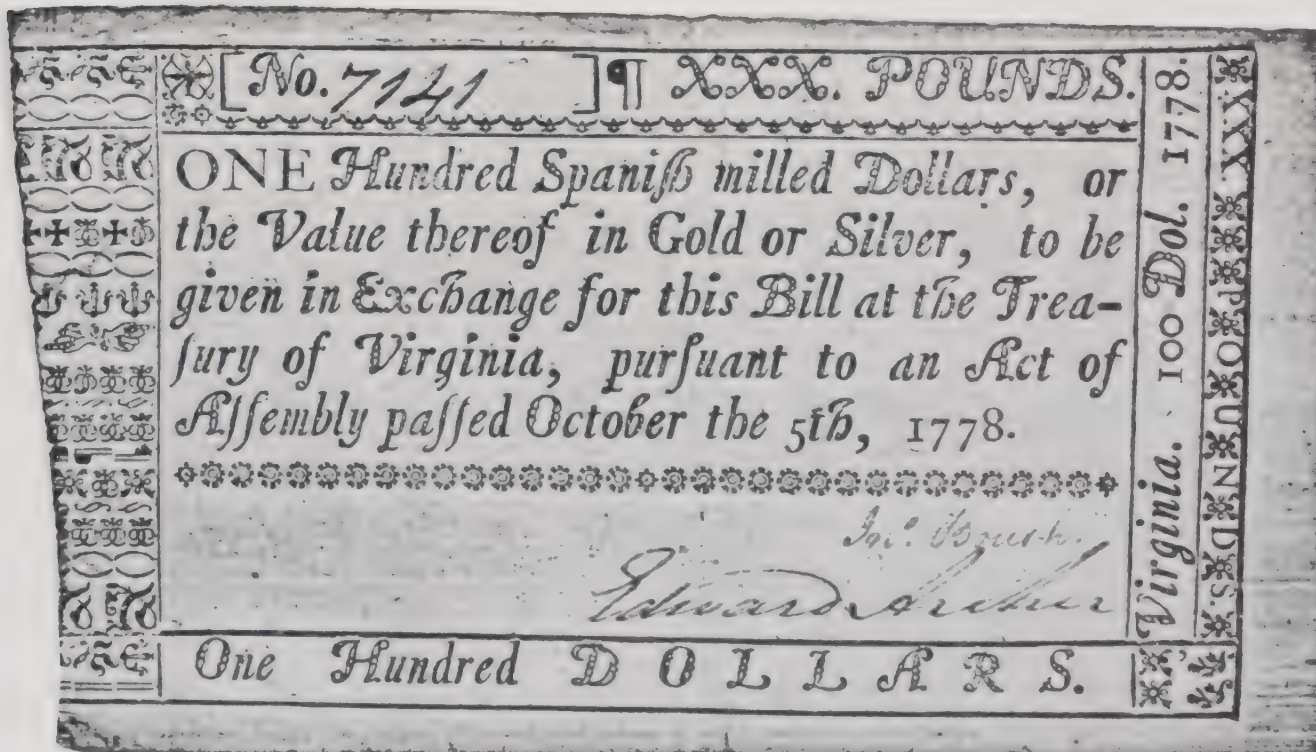 [No. 7141 ] ¶ XXX. POUNDS.
ONE Hundred Spaniſh milled Dollars, or
the Value thereof in Gold or Silver, to be
given in Exchange for this Bill at the Trea-
ſury of Virginia, purſuant to an Act of
Aſſembly paſſed October the 5th, 1778.
Edward Archer
One Hundred DOLLARS.
Virginia. 100 Dol. 1778.
XXX POUNDS.